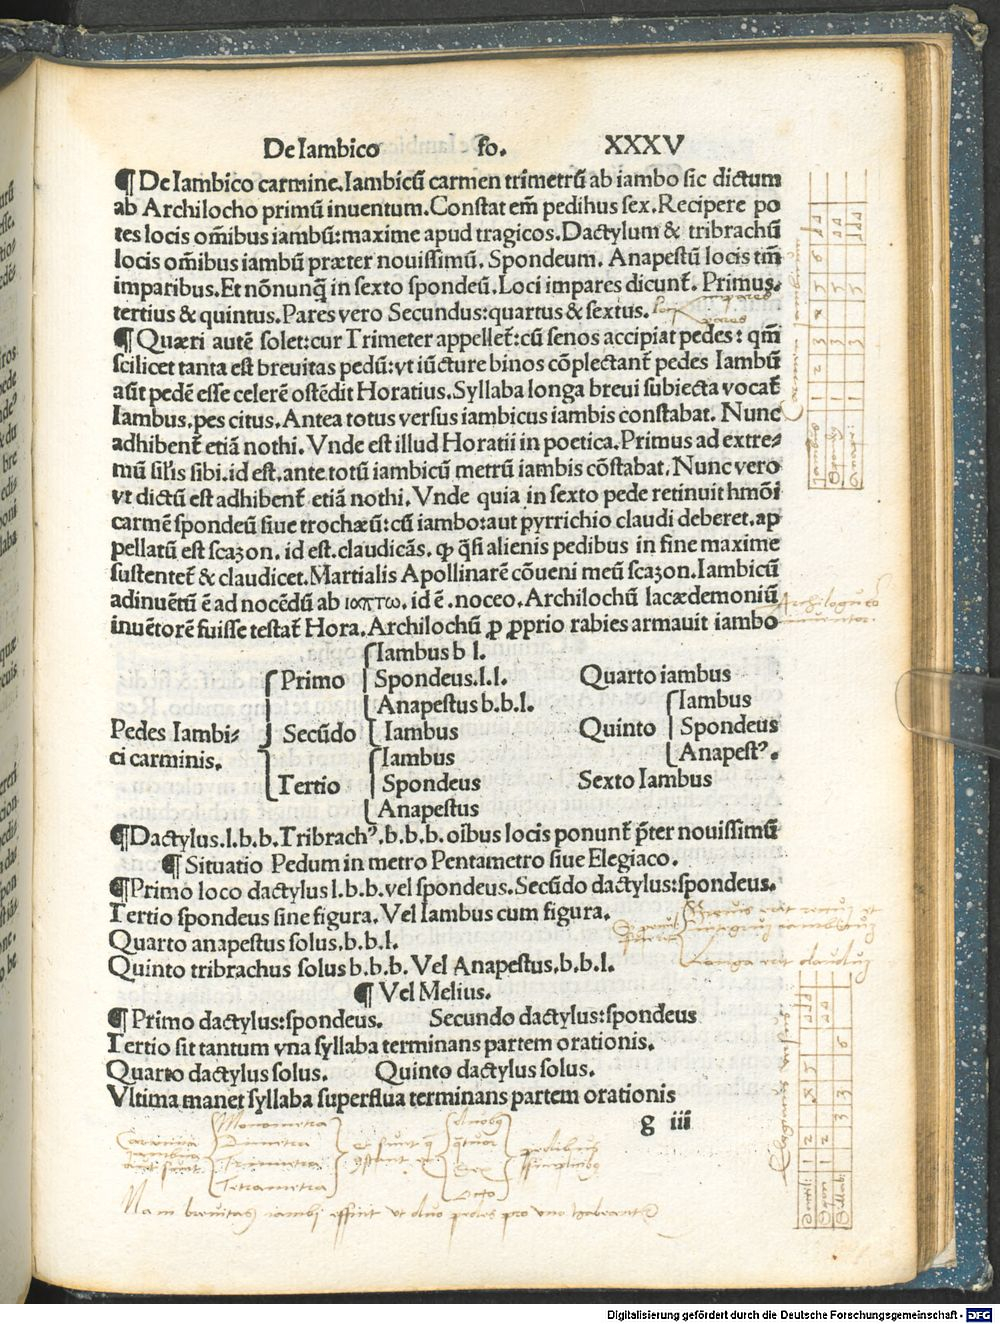 De Iambico fo. XXXV
¶ De Iambico carmine. Iambicū carmen trimetrū ab iambo sic dictum
ab Archilocho primū inuentum. Constat em̄ pedihus sex. Recipere po
tes locis om̄ibus iambū: maxime apud tragicos. Dactylum & tribrachū
locis om̄ibus iambū præter nouissimū. Spondeum. Anapestū locis tm̄
imparibus. Et nōnunq̄ in sexto spondeū. Loci impares dicunt̄. Primus.
tertius & quintus. Pares vero Secundus: quartus & sextus.
loci impares
pares
¶ Quæri autē solet: cur Trimeter appellet̄: cū senos accipiat pedes: qm̄
scilicet tanta est breuitas pedū: vt iūcture binos cōplectant̄ pedes Iambū
aūt pedē esse celerē ostēdit Horatius. Syllaba longa breui subiecta vocat̄
Iambus. pes citus. Antea totus versus iambicus iambis constabat. Nunc
adhibent̄ etiā nothi. Vnde est illud Horatii in poetica. Primus ad extre⸗
mū sil'is sibi. id est. ante totū iambicū metrū iambis cōstabat. Nunc vero
vt dictū est adhibent̄ etiā nothi. Vnde quia in sexto pede retinuit hmōi
carmē spondeū siue trochæū: cū iambo: aut pyrrichio claudi deberet. ap
pellatū est scazon. id est. claudicās. ꝙ q̄si alienis pedibus in fine maxime
sustentet̄ & claudicet. Martialis Apollinarē cōueni meū scazon. Iambicū
adinuētū ē ad nocēdū ab ιαπτω. id ē. noceo. Archilochū lacædemoniū
inuētorē fuisse testat̄ Hora. Archilochū ꝓ ꝓprio rabies armauit iambo
Iambus b l.
Primo Spondeus. l. l. Quarto iambus
Anapestus b. b. l. Iambus
Pedes Iambi⸗ Secūdo Iambus Quinto Spondeus
ci carminis. Iambus Anapestꝰ.
Tertio Spondeus Sexto Iambus
Anapestus
¶ Dactylus. l. b. b. Tribrachꝰ. b. b. b. oībus locis ponunt̄ p̄ter nouissimū
¶ Situatio Pedum in metro Pentametro siue Elegiaco.
¶ Primo loco dactylus l. b. b. vel spondeus. Secūdo dactylus: spondeus.
Tertio spondeus sine figura. Vel Iambus cum figura.
Quarto anapestus solus. b. b. l.
Quinto tribrachus solus b. b. b. Vel Anapestus. b. b. l.
¶ Vel Melius.
¶ Primo dactylus: spondeus. Secundo dactylus: spondeus
Tertio sit tantum vna syllaba terminans partem orationis.
Quarto dactylus solus. Quinto dactylus solus.
Vltima manet syllaba superflua terminans partem orationis
g iii
Carmina
iambica
aut sunt
Monometra
Dimetra
Trimetra
Tetrametra
duobus
q̄tuor
sex
octo
pedibus
Nam breuitas iambi efficit vt duo pedes pro vno habeantur
Digitalisierung gefördert durch die Deutsche Forschungsgemeinschaft - DFG